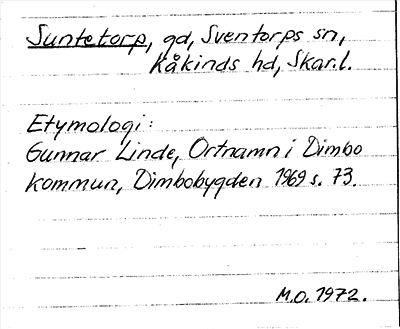 Suntetorp, gd, Sventorps sn,
Kåkinds hd, Skar.l.
Etymologi:
Gunnar Linde, Ortnamn i Dimbo
kommun, Dimbobygden 1969 s. 73.
M.O. 1972.